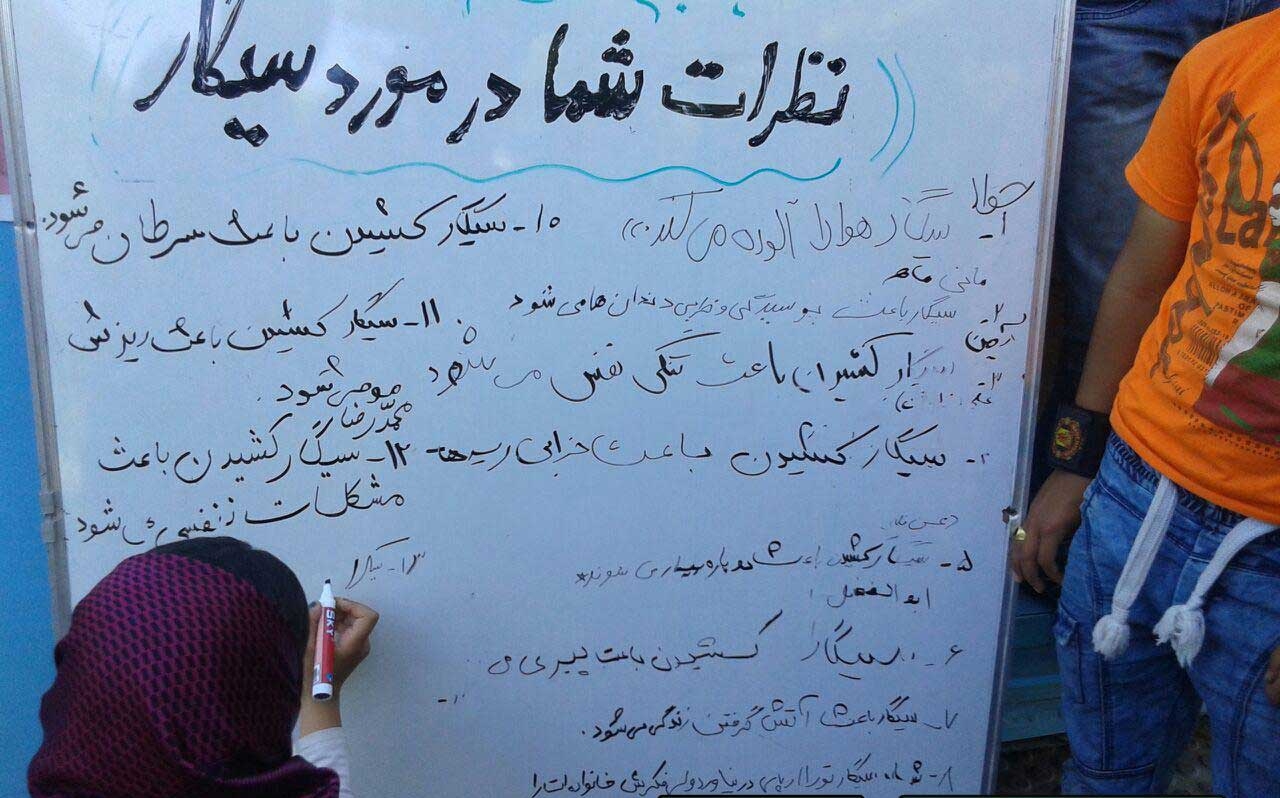 نظرات شما در مورد سیگار
۱- سیگار هوا را آلوده می کند
مانی ماهر
۲- سیگار باعث پوسیدگی و خرابی دندان ها می شود
۳- کشیدن باعث تنگی نفس می شود
۴- سیگار کشیدن باعث خرابی ریه ها
۵- سیگار کشیدن باعث
ابوالفضل
۶- سیگار کشیدن باعث پیری می
۷- سیگار باعث آتش گرفتن زندگی می شود.
۸- سیگار تو را از پای در نیاورد ولی فکرش خانواده ات را
۱۰- سیگار کشیدن باعث سرطان می شود.
۱۱- سیگار کشیدن باعث ریزش
مو می شود.
محمدرضا
۱۲- سیگار کشیدن باعث
مشکلات تنفسی می شود
۱۳- سیگار
SKY